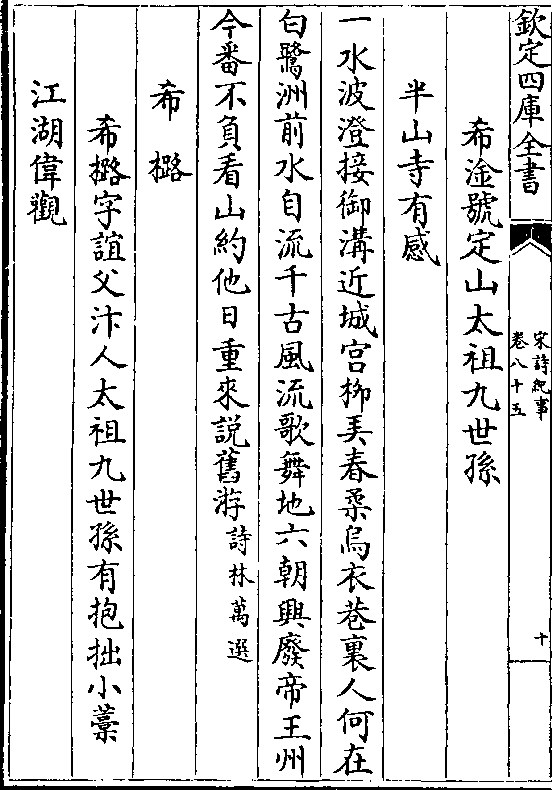 欽定四庫全書
宋詩紀事
卷八十五
十
希淦號定山太祖九世孫
半山寺有感
一水波澄接御溝近城宫栁美春柔烏衣巷裏人何在
白鷺洲前水自流千古風流歌舞地六朝興廢帝王州
今番不負看山約他日重來説舊游詩林萬選
希㯝
希㯝字誼父汴人太祖九世孫有抱拙小藁
江湖偉觀